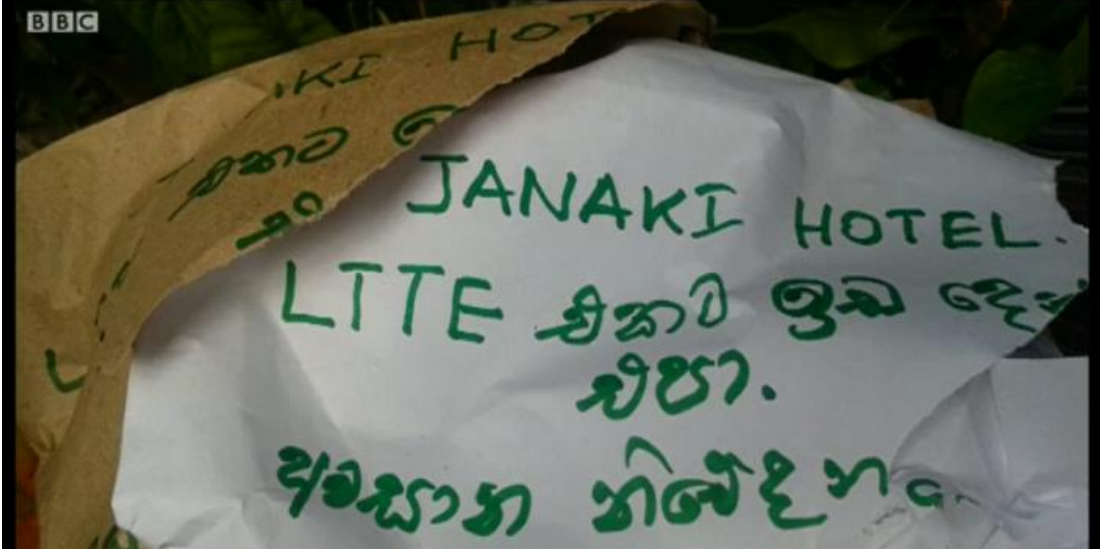 BBC
KI HOT
එකට ඉ
JANAKI HOTEL.
LTTE එකට ඉඩ
එපා.
අවසාන නිවේදන